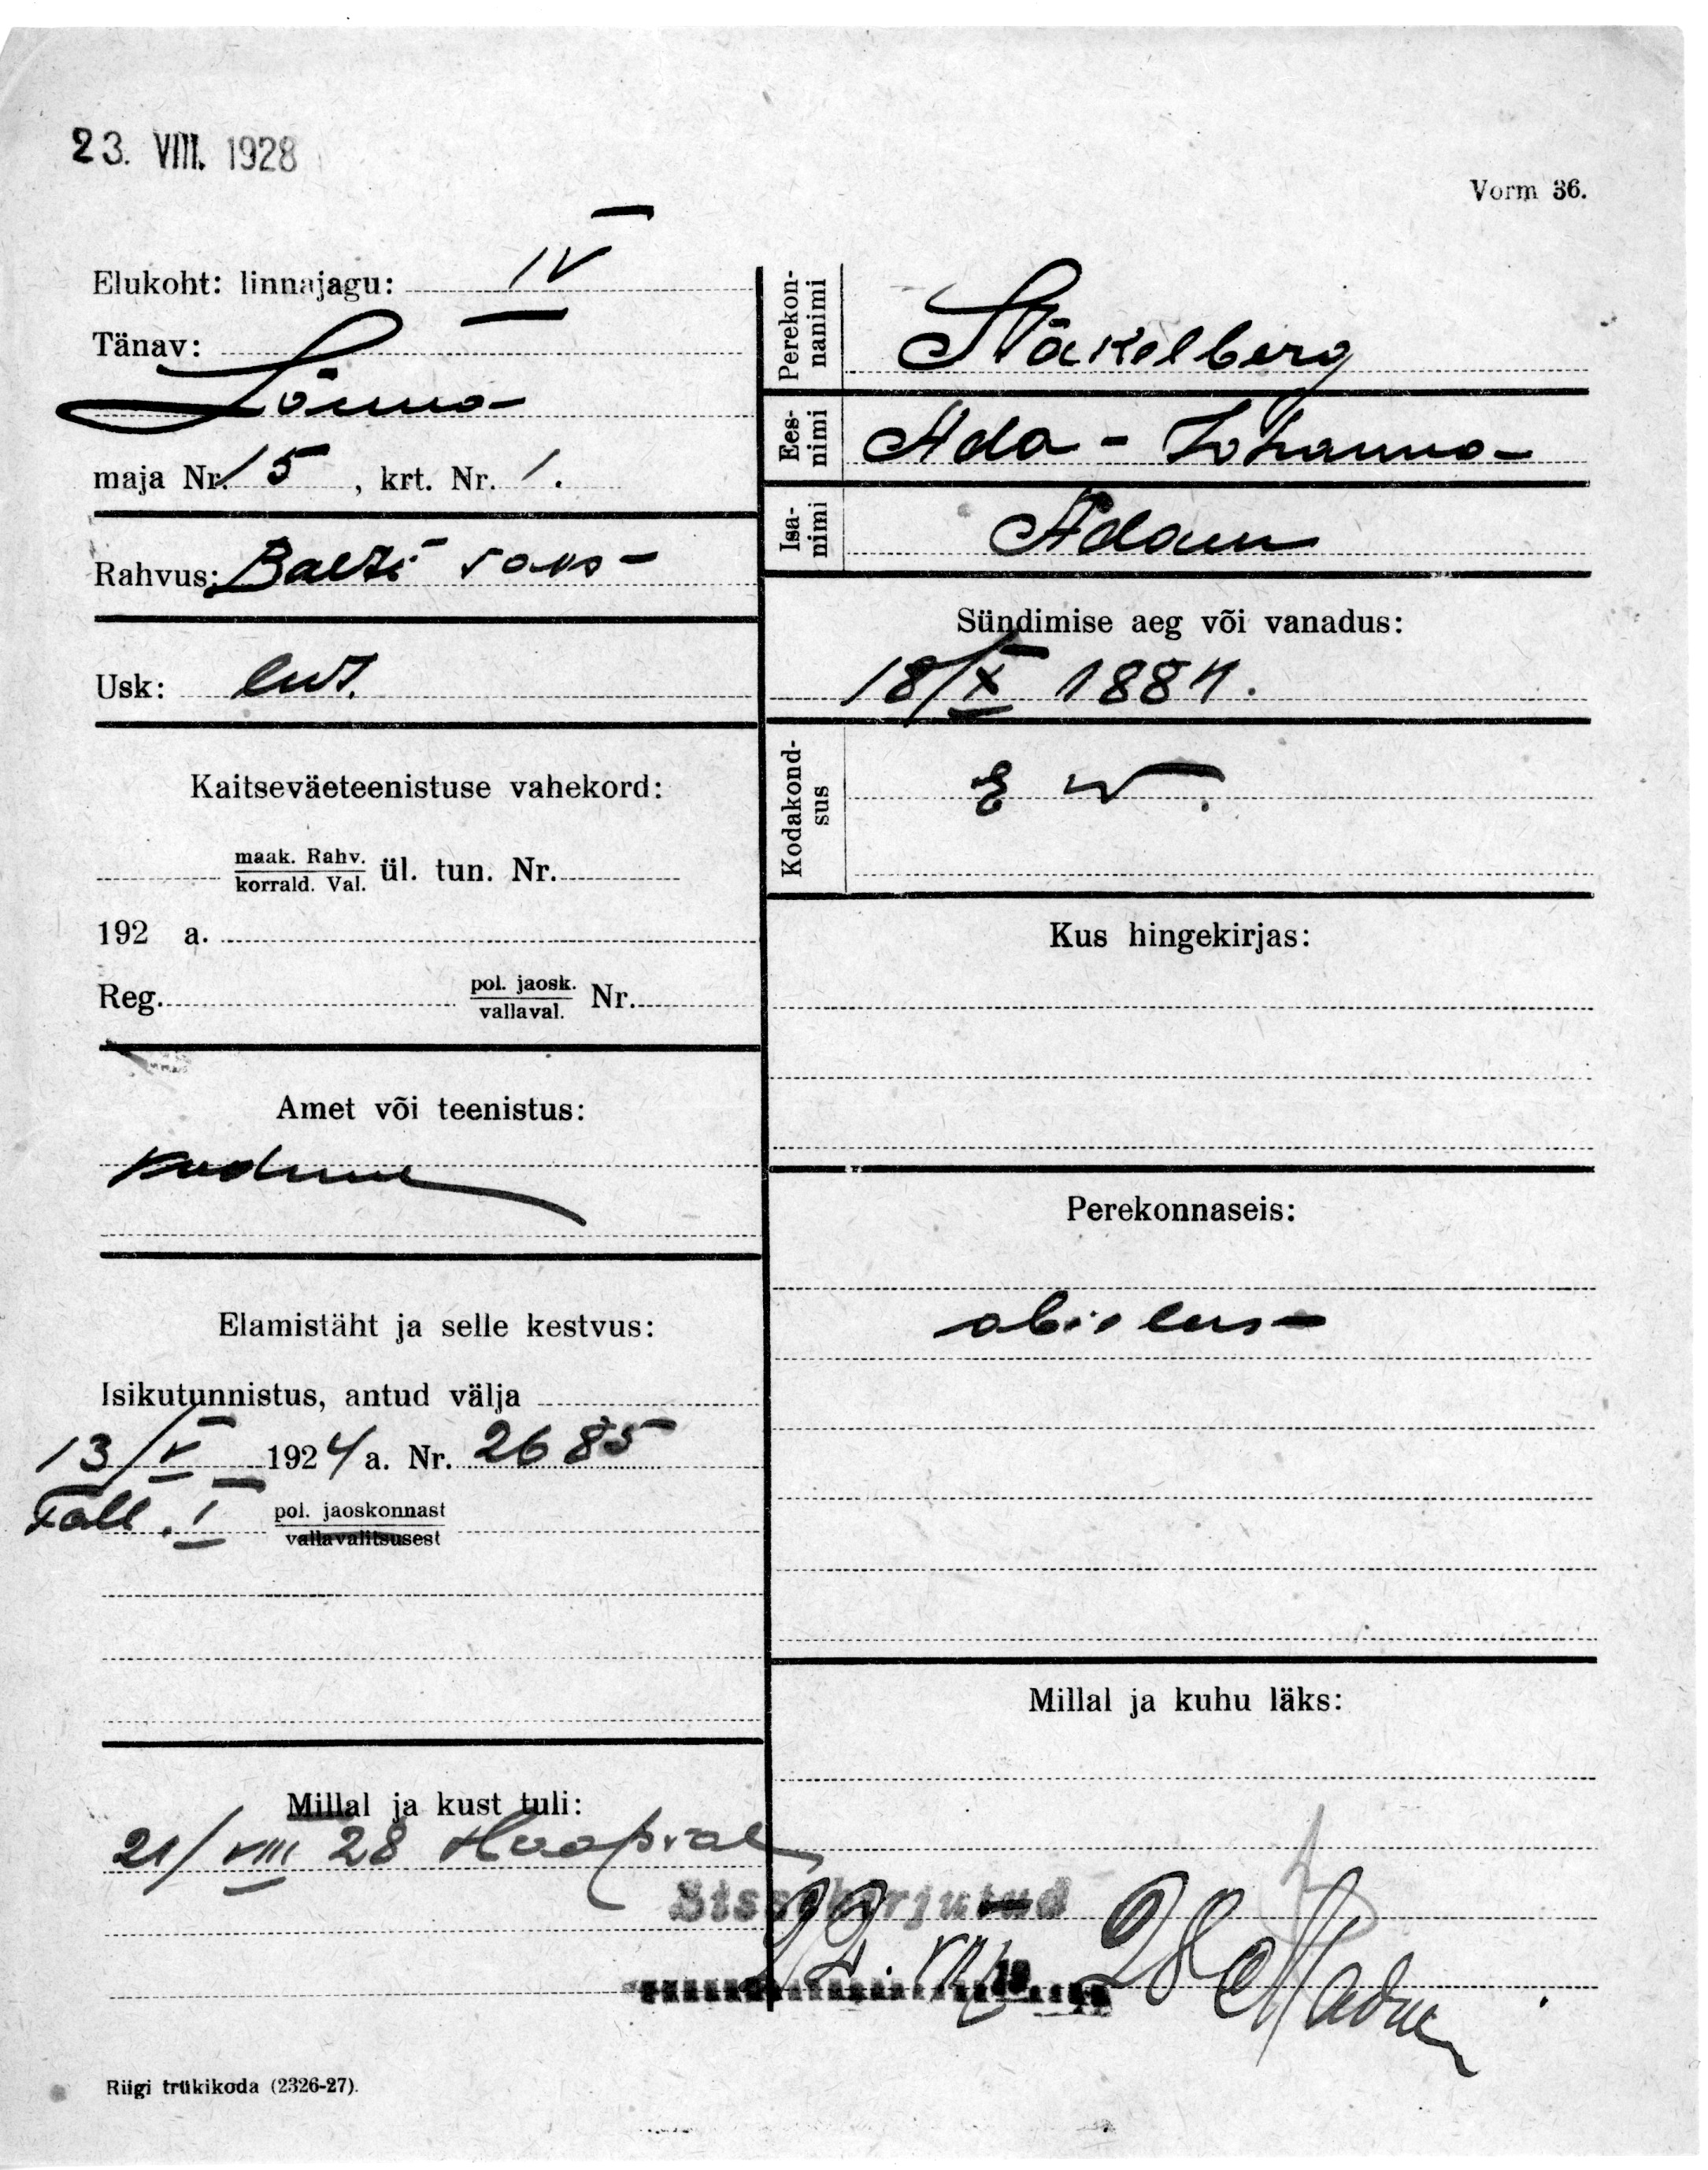 23. VIII. 1928
Vorm 36.
Elukoht: linnajagu: IV
Tänav:
Lõuna
maja Nr. 15, krt. Nr. 1.
Rahvus: Balti saks
Usk: lut.
Kaitseväeteenistuse vahekord:
maak. Rahv.
korrald. Val. ül. tun. Nr.
192 a.
Reg. pol. jaosk.
vallaval. Nr.
Amet või teenistus:
kodune
Elamistäht ja selle kestvus:
Isikutunnistus, antud välja
13/V 1924 a. Nr. 2685
Tall. I pol. jaoskonnast
vallavalitsusest
Millal ja kust tuli:
21/VIII 28 Haapsal
Riigi trükikoda (2326-27).
Perekonnanimi
Stäkelberg
Eesnimi
Ada - Johanna
Isanimi
Adam
Sündimise aeg või vanadus:
18/X 1884.
Kodakondsus
E W.
Kus hingekirjas:
Perekonnaseis:
abielus
Millal ja kuhu läks:
Sissekirjutud
22. VIII 28